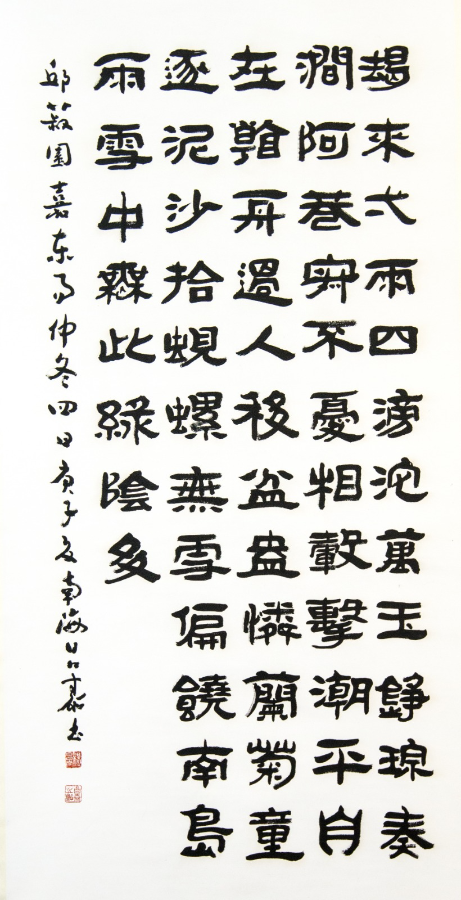 朅來大雨四滂沱萬玉錚琮奏
澗阿巷窄不憂相轂擊潮平自
在看舟過人移盆盎憐蘭菊童
逐泥沙拾蜆螺無雪偏饒南島
雨雪中無此綠陰多
邱菽園嘉东仲冬四日庚子南海嘉书